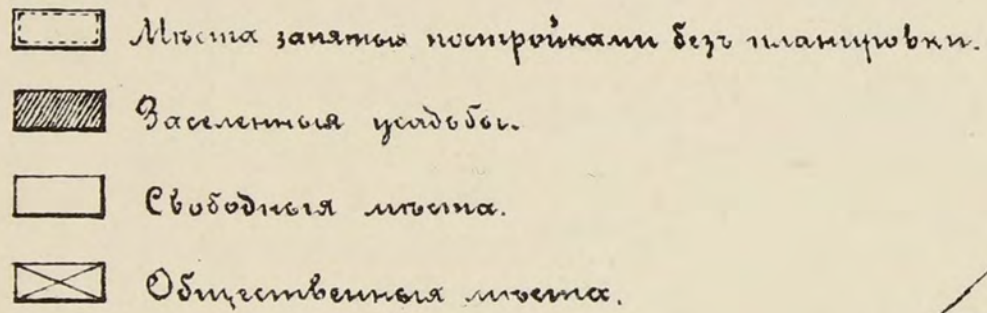 Мѣста занятыя постройками безъ планировки.
Заселенныя усадьбы.
Свободныя мѣста.
Общественныя мѣста.